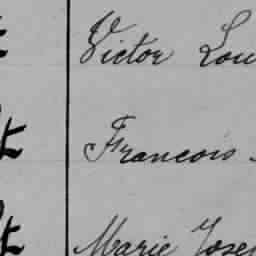 Victor Lou
Francois
Marie Josep